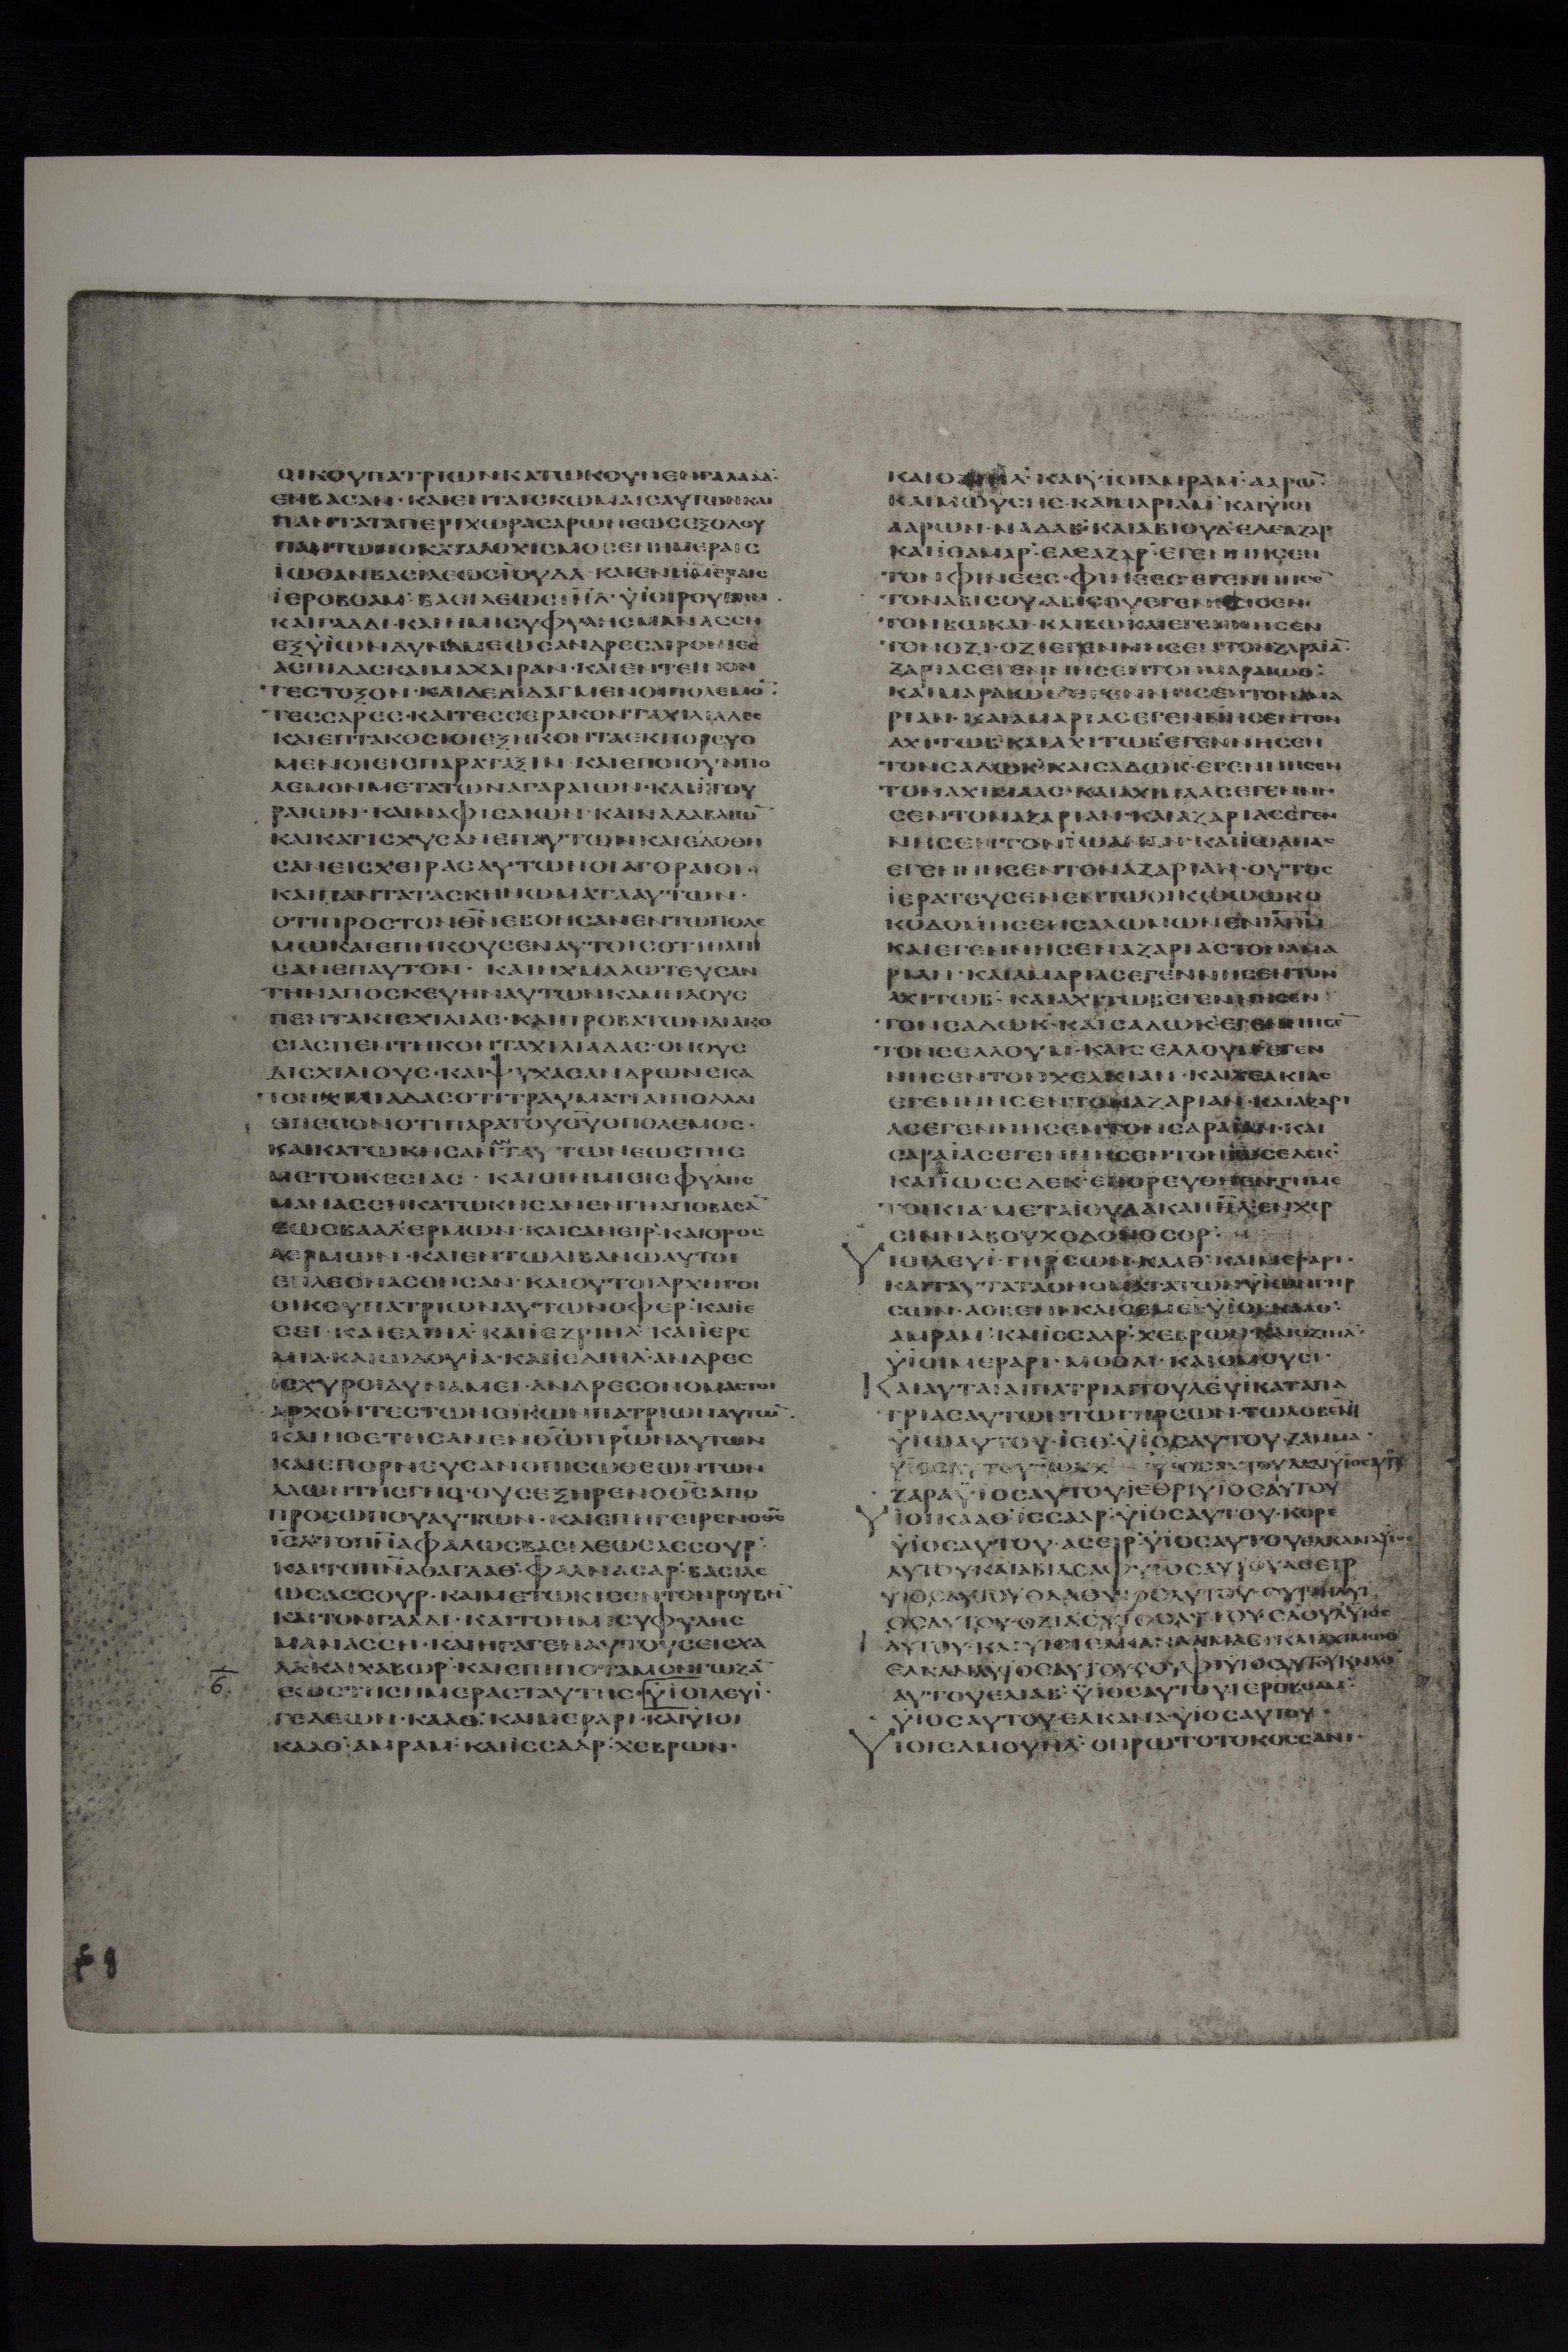 ΟΙΚΟΥΠΑΤΡΙΩΝΚΑΤΩΚΟΥΝΕΝΓΑΛΑΑΔ·
ΕΝΒΑΣΑΝ·ΚΑΙΕΝΤΑΙΣΚΩΜΑΙΣΑΥΤΩΝΚΑΙ
ΠΑΝΤΑΤΑΠΕΡΙΧΩΡΑΣΑΡΩΝΕΩΣΕΞΟΔΟΥ
ΠΑΝΤΩΝΟΚΑΤΑΛΟΧΙΣΜΟΣΕΝΗΜΕΡΑΙΣ
ΙΩΘΑΝΒΑΣΙΛΕΩΣΙΟΥΔΑ·ΚΑΙΕΝΗΜΕΡΑΙΣ
ΙΕΡΟΒΟΑΜ·ΒΑΣΙΛΕΩΣΙΗΛ·ΥΙΟΙΡΟΥΒΗΝ·
ΚΑΙΓΑΔΔΙ·ΚΑΙΗΜΙΣΥΦΥΛΗΣΜΑΝΑΣΣΗ
ΕΞΥΙΩΝΔΥΝΑΜΕΩΣΑΝΔΡΕΣΑΙΡΟΝΤΕΣ
ΑΣΠΙΔΑΣΚΑΙΜΑΧΑΙΡΑΝ·ΚΑΙΕΝΤΕΙΝΟΝ
ΤΕΣΤΟΞΟΝ·ΚΑΙΔΕΔΙΔΑΓΜΕΝΟΙΠΟΛΕΜΟ̅·
ΤΕΣΣΑΡΕΣ·ΚΑΙΤΕΣΣΕΡΑΚΟΝΤΑΧΙΛΙΑΔΕΣ
ΚΑΙΕΠΤΑΚΟΣΙΟΙΕΞΗΚΟΝΤΑΕΚΠΟΡΕΥΟ
ΜΕΝΟΙΕΙΣΠΑΡΑΤΑΞΙΝ·ΚΑΙΕΠΟΙΟΥΝΠΟ
ΛΕΜΟΝΜΕΤΑΤΩΝΑΓΑΡΑΙΩΝ·ΚΑΙΙΤΟΥ
ΡΑΙΩΝ·ΚΑΙΝΑΦΙΣΑΙΩΝ·ΚΑΙΝΑΔΑΒΑΙΩ̅
ΚΑΙΚΑΤΙΣΧΥΣΑΝΕΠΑΥΤΩΝΚΑΙΕΔΟΘΗ
ΣΑΝΕΙΣΧΕΙΡΑΣΑΥΤΩΝΟΙΑΓΟΡΑΙΟΙ·
ΚΑΙΠΑΝΤΑΤΑΣΚΗΝΩΜΑΤΑΑΥΤΩΝ·
ΟΤΙΠΡΟΣΤΟΝΘ̅Ν̅ΕΒΟΗΣΑΝΕΝΤΩΠΟΛΕ
ΜΩΚΑΙΕΠΗΚΟΥΣΕΝΑΥΤΟΙΣΟΤΙΗΛΠΙ
ΣΑΝΕΠΑΥΤΟΝ·ΚΑΙΗΧΜΑΛΩΤΕΥΣΑΝ
ΤΗΝΑΠΟΣΚΕΥΗΝΑΥΤΩΝΚΑΜΗΛΟΥΣ
ΠΕΝΤΑΚΙΣΧΙΛΙΑΣ·ΚΑΙΠΡΟΒΑΤΩΝΔΙΑΚΟ
ΣΙΑΣΠΕΝΤΗΚΟΝΤΑΧΙΛΙΑΔΑΣ·ΟΝΟΥΣ
ΔΙΣΧΙΛΙΟΥΣ·ΚΑΙΨΥΧΑΣΑΝΔΡΩΝΕΚΑ
ΤΟΝΧΙΛΙΑΔΑΣΟΤΙΤΡΑΥΜΑΤΙΑΙΠΟΛΛΟΙ
ΕΠΕΣΟΝΟΤΙΠΑΡΑΤΟΥΘ̅Υ̅ΟΠΟΛΕΜΟΣ·
ΚΑΙΚΑΤΩΚΗΣΑΝΑΝΤΑΥΤΩΝΕΩΣΤΗΣ
ΜΕΤΟΙΚΕΣΙΑΣ·ΚΑΙΟΙΗΜΙΣΕΙΣΦΥΛΗΣ
ΜΑΝΑΣΣΗΚΑΤΩΚΗΣΑΝΕΝΓΗΑΠΟΒΑΣΑ̅
ΕΩΣΒΑΑΛΕΡΜΩΝ·ΚΑΙΣΑΝΕΙΡ·ΚΑΙΟΡΟΣ
ΑΕΡΜΩΝ·ΚΑΙΕΝΤΩΛΙΒΑΝΩΑΥΤΟΙ
ΕΠΛΕΟΝΑΣΘΗΣΑΝ·ΚΑΙΟΥΤΟΙΑΡΧΗΓΟΙ
ΟΙΚΟΥΠΑΤΡΙΩΝΑΥΤΩΝΟΦΕΡ·ΚΑΙΙΕ
ΣΕΙ·ΚΑΙΕΛΙΗΛ·ΚΑΙΙΕΖΡΙΗΛ·ΚΑΙΙΕΡΕ
ΜΙΑ·ΚΑΙΩΔΟΥΙΑ·ΚΑΙΙΕΔΙΗΛ·ΑΝΔΡΕΣ
ΙΣΧΥΡΟΙΔΥΝΑΜΕΙ·ΑΝΔΡΕΣΟΝΟΜΑΣΤΟΙ
ΑΡΧΟΝΤΕΣΤΩΝΟΙΚΩΝΠΑΤΡΙΩΝΑΥΤΩ̅·
ΚΑΙΗΘΕΤΗΣΑΝΕΝΘ̅Ω̅Π̅Ρ̅Ω̅Ν̅ΑΥΤΩΝ
ΚΑΙΕΠΟΡΝΕΥΣΑΝΟΠΙΣΩΘΕΩΝΤΩΝ
ΛΑΩΝΤΗΣΓΗΣ·ΟΥΣΕΞΗΡΕΝΟΘ̅Σ̅ΑΠΟ
ΠΡΟΣΩΠΟΥΑΥΤΩΝ·ΚΑΙΕΠΗΓΕΙΡΕΝΟΘ̅Σ̅
Ι̅Η̅Λ̅ΤΟΠ̅Ν̅Α̅ΦΑΛΩΣΒΑΣΙΛΕΩΣΑΣΣΟΥΡ·
ΚΑΙΤΟΠ̅Ν̅Α̅ΘΑΓΛΑΘ·ΦΑΛΝΑΣΑΡ·ΒΑΣΙΛΕ
ΩΣΑΣΣΟΥΡ·ΚΑΙΜΕΤΩΚΙΣΕΝΤΟΝΡΟΥΒΗ̅
ΚΑΙΤΟΝΓΑΔΔΙ·ΚΑΙΤΟΗΜΙΣΥΦΥΛΗΣ
ΜΑΝΑΣΣΗ·ΚΑΙΗΓΑΓΕΝΑΥΤΟΥΣΕΙΣΧΑ
ΛΑ·ΚΑΙΧΑΒΩΡ·ΚΑΙΕΠΙΠΟΤΑΜΟΝΓΩΖΑ̅
ΕΩΣΤΗΣΗΜΕΡΑΣΤΑΥΤΗΣ·ΥΙΟΙΛΕΥΙ·
ΓΕΔΕΩΝ·ΚΑΑΘ·ΚΑΙΜΕΡΑΡΙ·ΚΑΙΥΙΟΙ
ΚΑΑΘ·ΑΜΡΑΜ·ΚΑΙΙΣΣΑΑΡ·ΧΕΒΡΩΝ·
ΚΑΙΟΖΙΗΛ·ΚΑΙΥΙΟΙΑΜΡΑΜ·ΑΑΡΩ̅·
ΚΑΙΜΩΥΣΗΣ·ΚΑΙΜΑΡΙΑΜ·ΚΑΙΥΙΟΙ
ΑΑΡΩΝ·ΝΑΔΑΒ·ΚΑΙΑΒΙΟΥΔ·ΕΛΕΑΖΑΡ
ΚΑΙΙΘΑΜΑΡ·ΕΛΕΑΖΑΡ·ΕΓΕΝΝΗΣΕΝ
ΤΟΝΦΙΝΕΕΣ·ΦΙΝΕΕΣΕΓΕΝΝΗΣΕ̅
ΤΟΝΑΒΙΣΟΥ·ΑΒΙΣΟΥΕΓΕΝΝΗΣΕΝ·
ΤΟΝΒΩΚΑΙ·ΚΑΙΒΩΚΑΙΕΓΕΝΝΗΣΕΝ
ΤΟΝΟΖΙ·ΟΖΙΕΓΕΝΝΗΣΕΝΤΟΝΖΑΡΑΙΑ̅·
ΖΑΡΙΑΣΕΓΕΝΝΗΣΕΝΤΟΝΜΑΡΑΙΩΘ·
ΚΑΙΜΑΡΑΙΩΘΕΓΕΝΝΗΣΕΝΤΟΝΑΜΑ
ΡΙΑΝ·ΚΑΙΑΜΑΡΙΑΣΕΓΕΝΝΗΣΕΝΤΟΝ
ΑΧΙΤΩΒ·ΚΑΙΑΧΙΤΩΒΕΓΕΝΝΗΣΕΝ
ΤΟΝΣΑΔΩΚ·ΚΑΙΣΑΔΩΚ·ΕΓΕΝΝΗΣΕΝ
ΤΟΝΑΧΙΜΑΑΣ·ΚΑΙΑΧΙΜΑΑΣΕΓΕΝΝΗ·
ΣΕΝΤΟΝΑΖΑΡΙΑΝ·ΚΑΙΑΖΑΡΙΑΣΕΓΕΝ
ΝΗΣΕΝΤΟΝΙΩΑΝΑΝ·ΚΑΙΙΩΑΝΑΣ
ΕΓΕΝΝΗΣΕΝΤΟΝΑΖΑΡΙΑΝ·ΟΥΤΟΣ
ΙΕΡΑΤΕΥΣΕΝΕΝΤΩΟΙΚΩΩΩΚΟ
ΚΟΔΟΜΗΣΕΝΣΑΛΩΜΩΝΕΝΙ̅Λ̅Η̅Μ̅
ΚΑΙΕΓΕΝΝΗΣΕΝΑΖΑΡΙΑΣΤΟΝΑΜΑ
ΡΙΑΝ·ΚΑΙΑΜΑΡΙΑΣΕΓΕΝΝΗΣΕΝΤΟΝ
ΑΧΙΤΩΒ·ΚΑΙΑΧΙΤΩΒΕΓΕΝΝΗΣΕΝ
ΤΟΝΣΑΔΩΚ·ΚΑΙΣΑΔΩΚΕΓΕΝΝΗΣΕ̅
ΤΟΝΣΕΛΛΟΥΜ·ΚΑΙΣΕΛΛΟΥΜΕΓΕΝ
ΝΗΣΕΝΤΟΝΧΕΛΚΙΑΝ·ΚΑΙΧΕΛΚΙΑΣ
ΕΓΕΝΝΗΣΕΝΤΟΝΑΖΑΡΙΑΝ·ΚΑΙΑΖΑΡΙ
ΑΣΕΓΕΝΝΗΣΕΝΤΟΝΣΑΡΑΙΑΝ·ΚΑΙ
ΣΑΡΑΙΑΣΕΓΕΝΝΗΣΕΝΤΟΝΙΩΣΕΔΕΚ·
ΚΑΙΙΩΣΕΔΕΚ·ΕΠΟΡΕΥΘΗΕΝΤΗΜΕ
ΤΟΙΚΙΑ·ΜΕΤΑΙΟΥΔΑΚΑΙΙ̅Η̅Λ̅·ΕΝΧΙΡ
ΣΙΝΝΑΒΟΥΧΟΔΟΝΟΣΟΡ·
ΥΙΟΙΛΕΥΙ·ΓΗΡΣΩΝ·ΚΑΑΘ·ΚΑΙΜΕΡΑΡΙ·
ΚΑΙΤΑΥΤΑΤΑΟΝΟΜΑΤΑΤΩΝΥΙΩΝΓΗΡ
ΣΩΝ·ΛΟΒΕΝΙ·ΚΑΙΣΕΜΕΙ·ΥΙΟΙΚΑΑΘ·
ΑΜΡΑΜ·ΚΑΙΙΣΣΑΑΡ·ΧΕΒΡΩΝ·ΚΑΙΟΖΙΗΛ·
ΥΙΟΙΜΕΡΑΡΙ·ΜΟΟΛΙ·ΚΑΙΟΜΟΥΣΙ·
ΚΑΙΑΥΤΑΙΑΙΠΑΤΡΙΑΙΤΟΥΛΕΥΙΚΑΤΑΠΑ
ΤΡΙΑΣΑΥΤΩΝΤΩΓΗΡΣΩΝ·ΤΩΛΟΒΕΝΙ
ΥΙΩΑΥΤΟΥ·ΙΕΘ·ΥΙΟΣΑΥΤΟΥ·ΖΑΜΜΑ·
ΖΑΡΑΥΙΟΣΑΥΤΟΥΙΕΘΡΙΥΙΟΣΑΥΤΟΥ
ΥΙΟΙΚΑΑΘ·ΙΣΣΑΑΡ·ΥΙΟΣΑΥΤΟΥ·ΚΟΡΕ
ΥΙΟΣΑΥΤΟΥ·ΑΣΕΙΡ·ΥΙΟΣΑΥΤΟΥΕΛΚΑΝΑΥΙΟΣ
ΑΥΤΟΥΚΑΙΑΒΙΑΣΑΦΥΙΟΣΑΥΤΟΥΑΣΕΙΡ
ΥΙΟΣΑΥΤΟΥΘΑΑΘΥΙΟΣΑΥΤΟΥ·ΟΥΡΙΗΛΥΙ
ΟΣΑΥΤΟΥ·ΟΖΙΑΣΥΙΟΣΑΥΤΟΥΣΑΟΥΛΥΙΟΣ
ΑΥΤΟΥ·ΚΑΙΥΙΟΙΕΛΚΑΝΑ
ΑΥΤΟΥΕΛΙΑΒ·ΥΙΟΣΑΥΤΟΥΙΕΡΟΒΟΑΜ·
ΥΙΟΣΑΥΤΟΥ·ΕΛΚΑΝΑ·ΥΙΟΣΑΥΤΟΥ·
ΥΙΟΙΣΑΜΟΥΗΛ·ΟΠΡΩΤΟΤΟΚΟΣΣΑΝΙ·